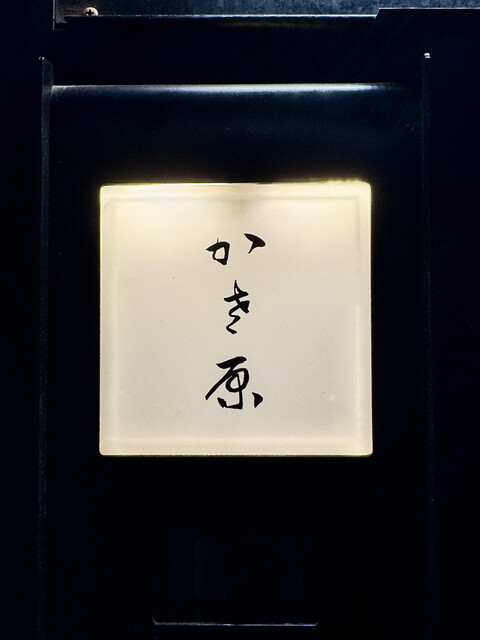 かき原